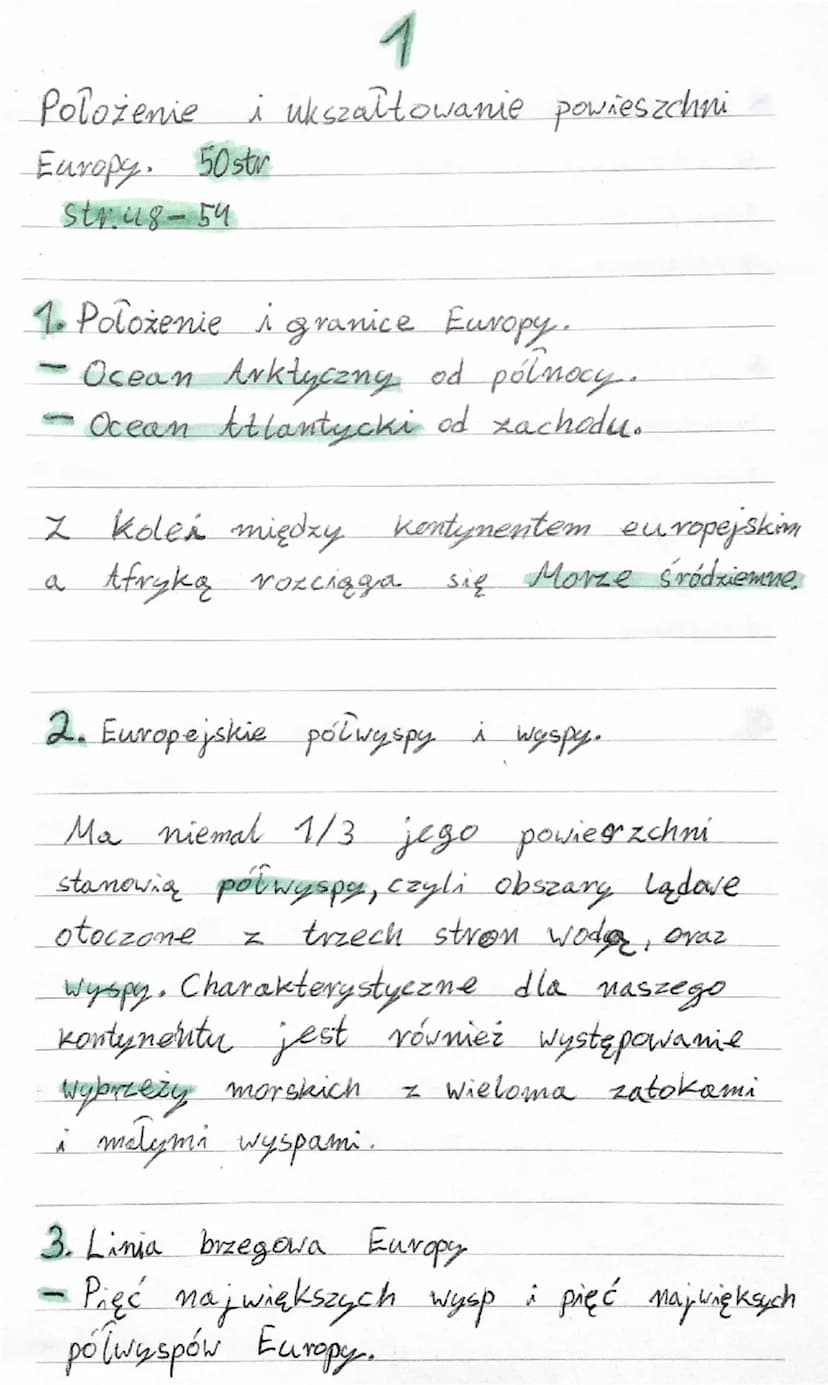 1
Położenie i ukszałtowanie powieszchni
Europy. 50str
str. 48-54
1. Położenie i granice Europy.
- Ocean Arktyczny od północy.
- Ocean Atlantycki od zachodu.
Z kolei między kontynentem europejskim
a Afryką rozciąga się Morze śródziemne.
2. Europejskie półwyspy i wyspy.
Ma niemal 1/3 jego powierzchni
stanowią półwyspy, czyli obszary lądowe
otoczone z trzech stron wodą, oraz
wyspy. Charakterystyczne dla naszego
kontynentu jest również występowanie
wybrzeży morskich z wieloma zatokami
i małymi wyspami.
3. Linia brzegowa Europy
- Pięć największych wysp i pięć najwięksych
półwyspów Europy.